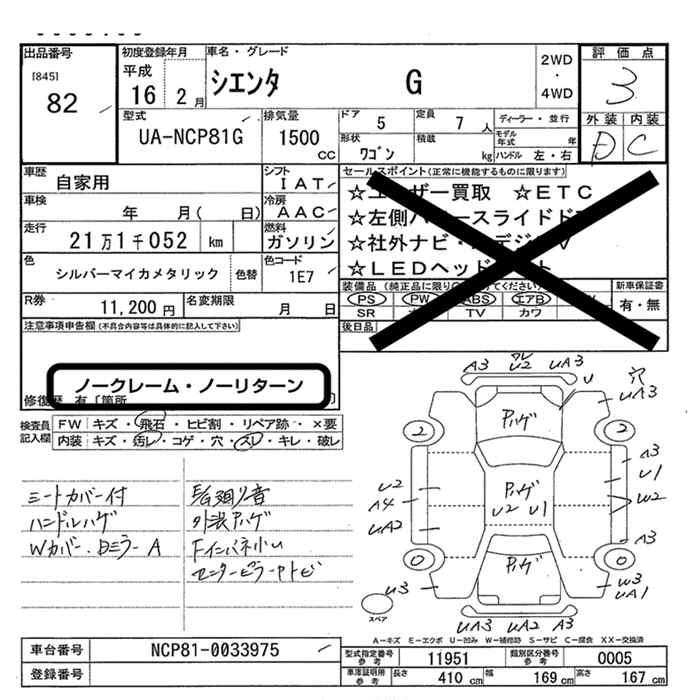 出品番号 初度登録年月 車名・グレード 評価点
[845] 平成 シエンタ G 2WD ・ 4WD 3
82 16 2月 外装 内装
型式 排気量 ドア 5 定員 7 人 ディーラー・並行 D C
UA-NCP81G 1500 CC 形状 ワゴン 積載 kg モデル年式 年 ハンドル 左・右
車歴 自家用 シフト IAT セールスポイント(正常に機能するものに限ります)
車検 年 月( 日) 冷房 AAC ☆ETC
走行 21万1千052 km 燃料 ガソリン ☆左側
色 シルバーマイカメタリック 色替 色コード 1E7 ☆社外ナビ・
☆LEDヘッド
R券 11,200円 名変期限 月 日 装備品 新車保証書
PS PW ABS エアB 有・無
SR TV カワ
注意事項申告欄 (不具合内容等は具体的に記入して下さい) 後日品
ノークレーム・ノーリターン
修復歴 有 〔箇所
検査員記入欄 FW キズ・飛石・ヒビ割・リペア跡・×要
内装 キズ・汚レ・コゲ・穴・スレ・キレ・破レ
シートカバー付 E/G廻り音
ハンドルハゲ 外装Pハゲ
Wカバー.Dミラー A Fインパネ小U
センターピラーPトビ
A3 U2 UA3
U 穴 UA3
Pハゲ
2 2
A3
U2 Pハゲ U1
A4 U2 U1 W2
UA2
A3
0 Pハゲ 0
U3 W3
UA1
UA3 UA2 A3
スペア
A-キズ E-エクボ U-凹み W-補修跡 S-サビ C-腐食 XX-交換済
車台番号 NCP81-0033975 型式指定番号 参考 11951 類別区分番号 参考 0005
登録番号 車庫証明用 参考 長さ 410 cm 幅 169 cm 高さ 167 cm